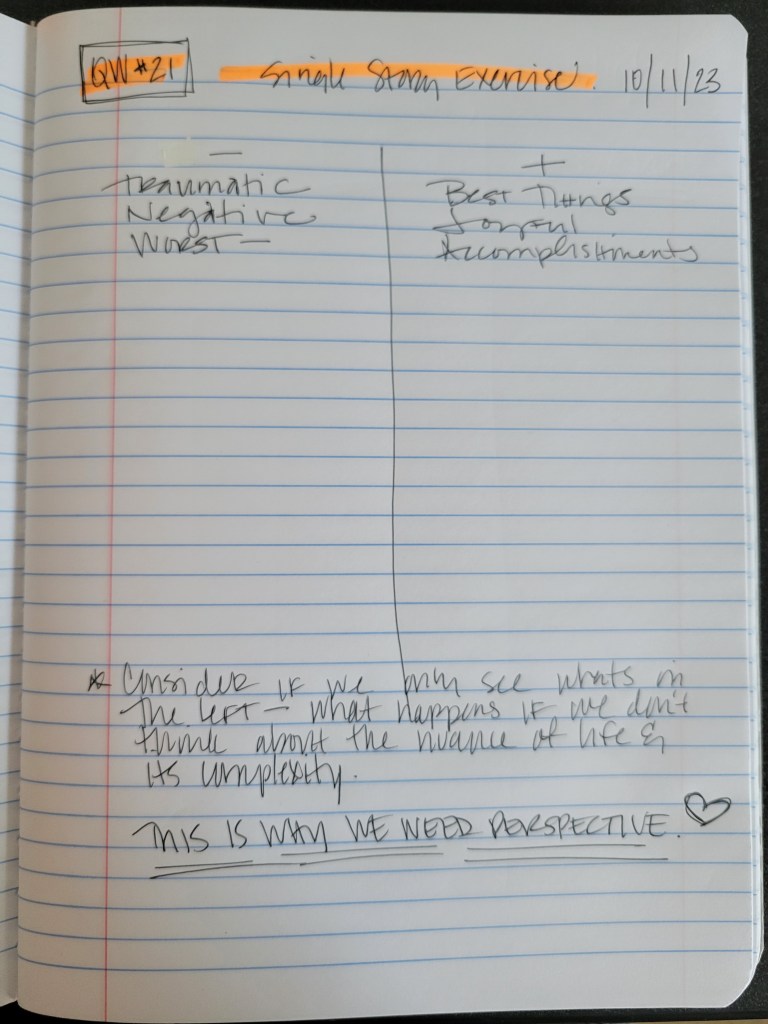 QW #21 Single Story Exercise. 10/11/23
— +
Traumatic Best Things
Negative Joyful
Worst — Accomplishments
* Consider if we only see whats in
the left — what happens if we don't
think about the nuance of life &
its complexity.
THIS IS WHY WE NEED PERSPECTIVE. ♡